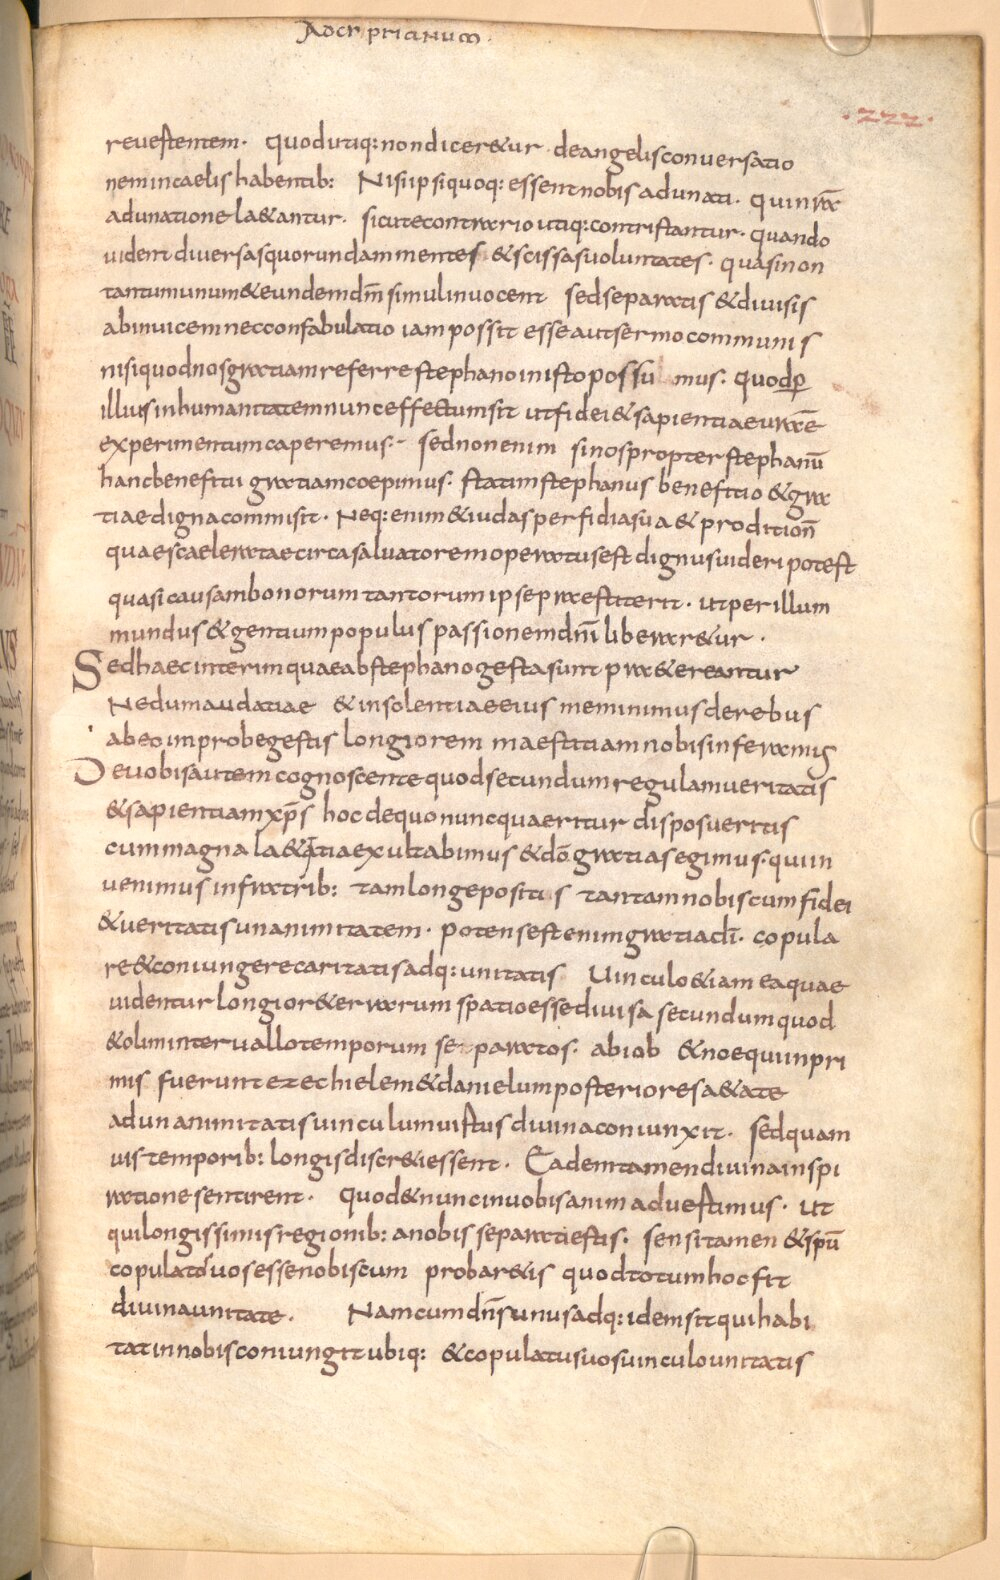 Ad cr̄prianum
.222.
reuestentem. quod utiq: non diceretur de angelis conuersatio
nem in caelis habentib: Nisi ipsi quoq: essent nobis adunati. qui nr̄a
adunatione laetantur. sicut e contrario utiq: contristantur. quando
uident diuersas quorundam mentes & scissas uoluntates. quasi non
tantum unum & eundem dm̄ simul inuocent sed separatis & diuisis
ab inuicem nec confabulatio iam possit esse aut sermo communis
nisi quod nos gratiam referre stephano in isto possu mus. quod ꝑ
illius inhumanitatem nunc effectum sit ut fidei & sapientiae urae̅
experimentum caperemus. sed non enim si nos propter stephanū
hanc benefitii gratiam coepimus. statim stephanus benefitio & gra
tiae digna commisit. Neq: enim & iudas perfidia sua & proditionē
qua escaelerate circa saluatorem operatus est dignus uideri potest
quasi causam bonorum tantorum ipse praestiterit. ut per illum
mundus & gentium populus passionem dnī liberaretur.
Sed haec interim quae ab stephano gesta sunt praetereantur
Ne dum audatiae & insolentiae eius meminimus de rebus
ab eo improbe gestis longiorem maestitiam nobis inferamus
De uobis autem cognoscente quod secundum regulam ueritatis
& sapientiam xp̄s hoc de quo nunc quaeritur disposueritis
cum magna laetitia exultabimus & dō gratias egimus. qui in
uenimus in fratrib: tam longe positis tantam nobiscum fidei
& ueritatis unanimitatem. potens est enim gratia dī. copula
re & coniungere caritatis adq: unitatis Uinculo etiam ea quae
uidentur longiore terrarum spatio esse diuisa secundum quod
& olim interuallo temporum se paratos. ab iob & noe qui in pri
mis fuerunt ezechielem & danielum posteriores aetate
ad unanimitatis uinculum uistus diuina coniunxit. sed quam
uis temporib: longis discreti essent. Eadem tamen diuina inspi
ratione sentirent. quod & nunc in uobis animaduestimus. ut
qui longissimis regionib: a nobis separati estis. sensi tamen & spū
copulatos uos esse nobiscum probaretis quod totum hoc fit
diuina unitate. Nam cum dn̄s unus adq: idem sit qui habi
tat in nobis coniungit ubiq: & copulatus uos uinculo unitatis